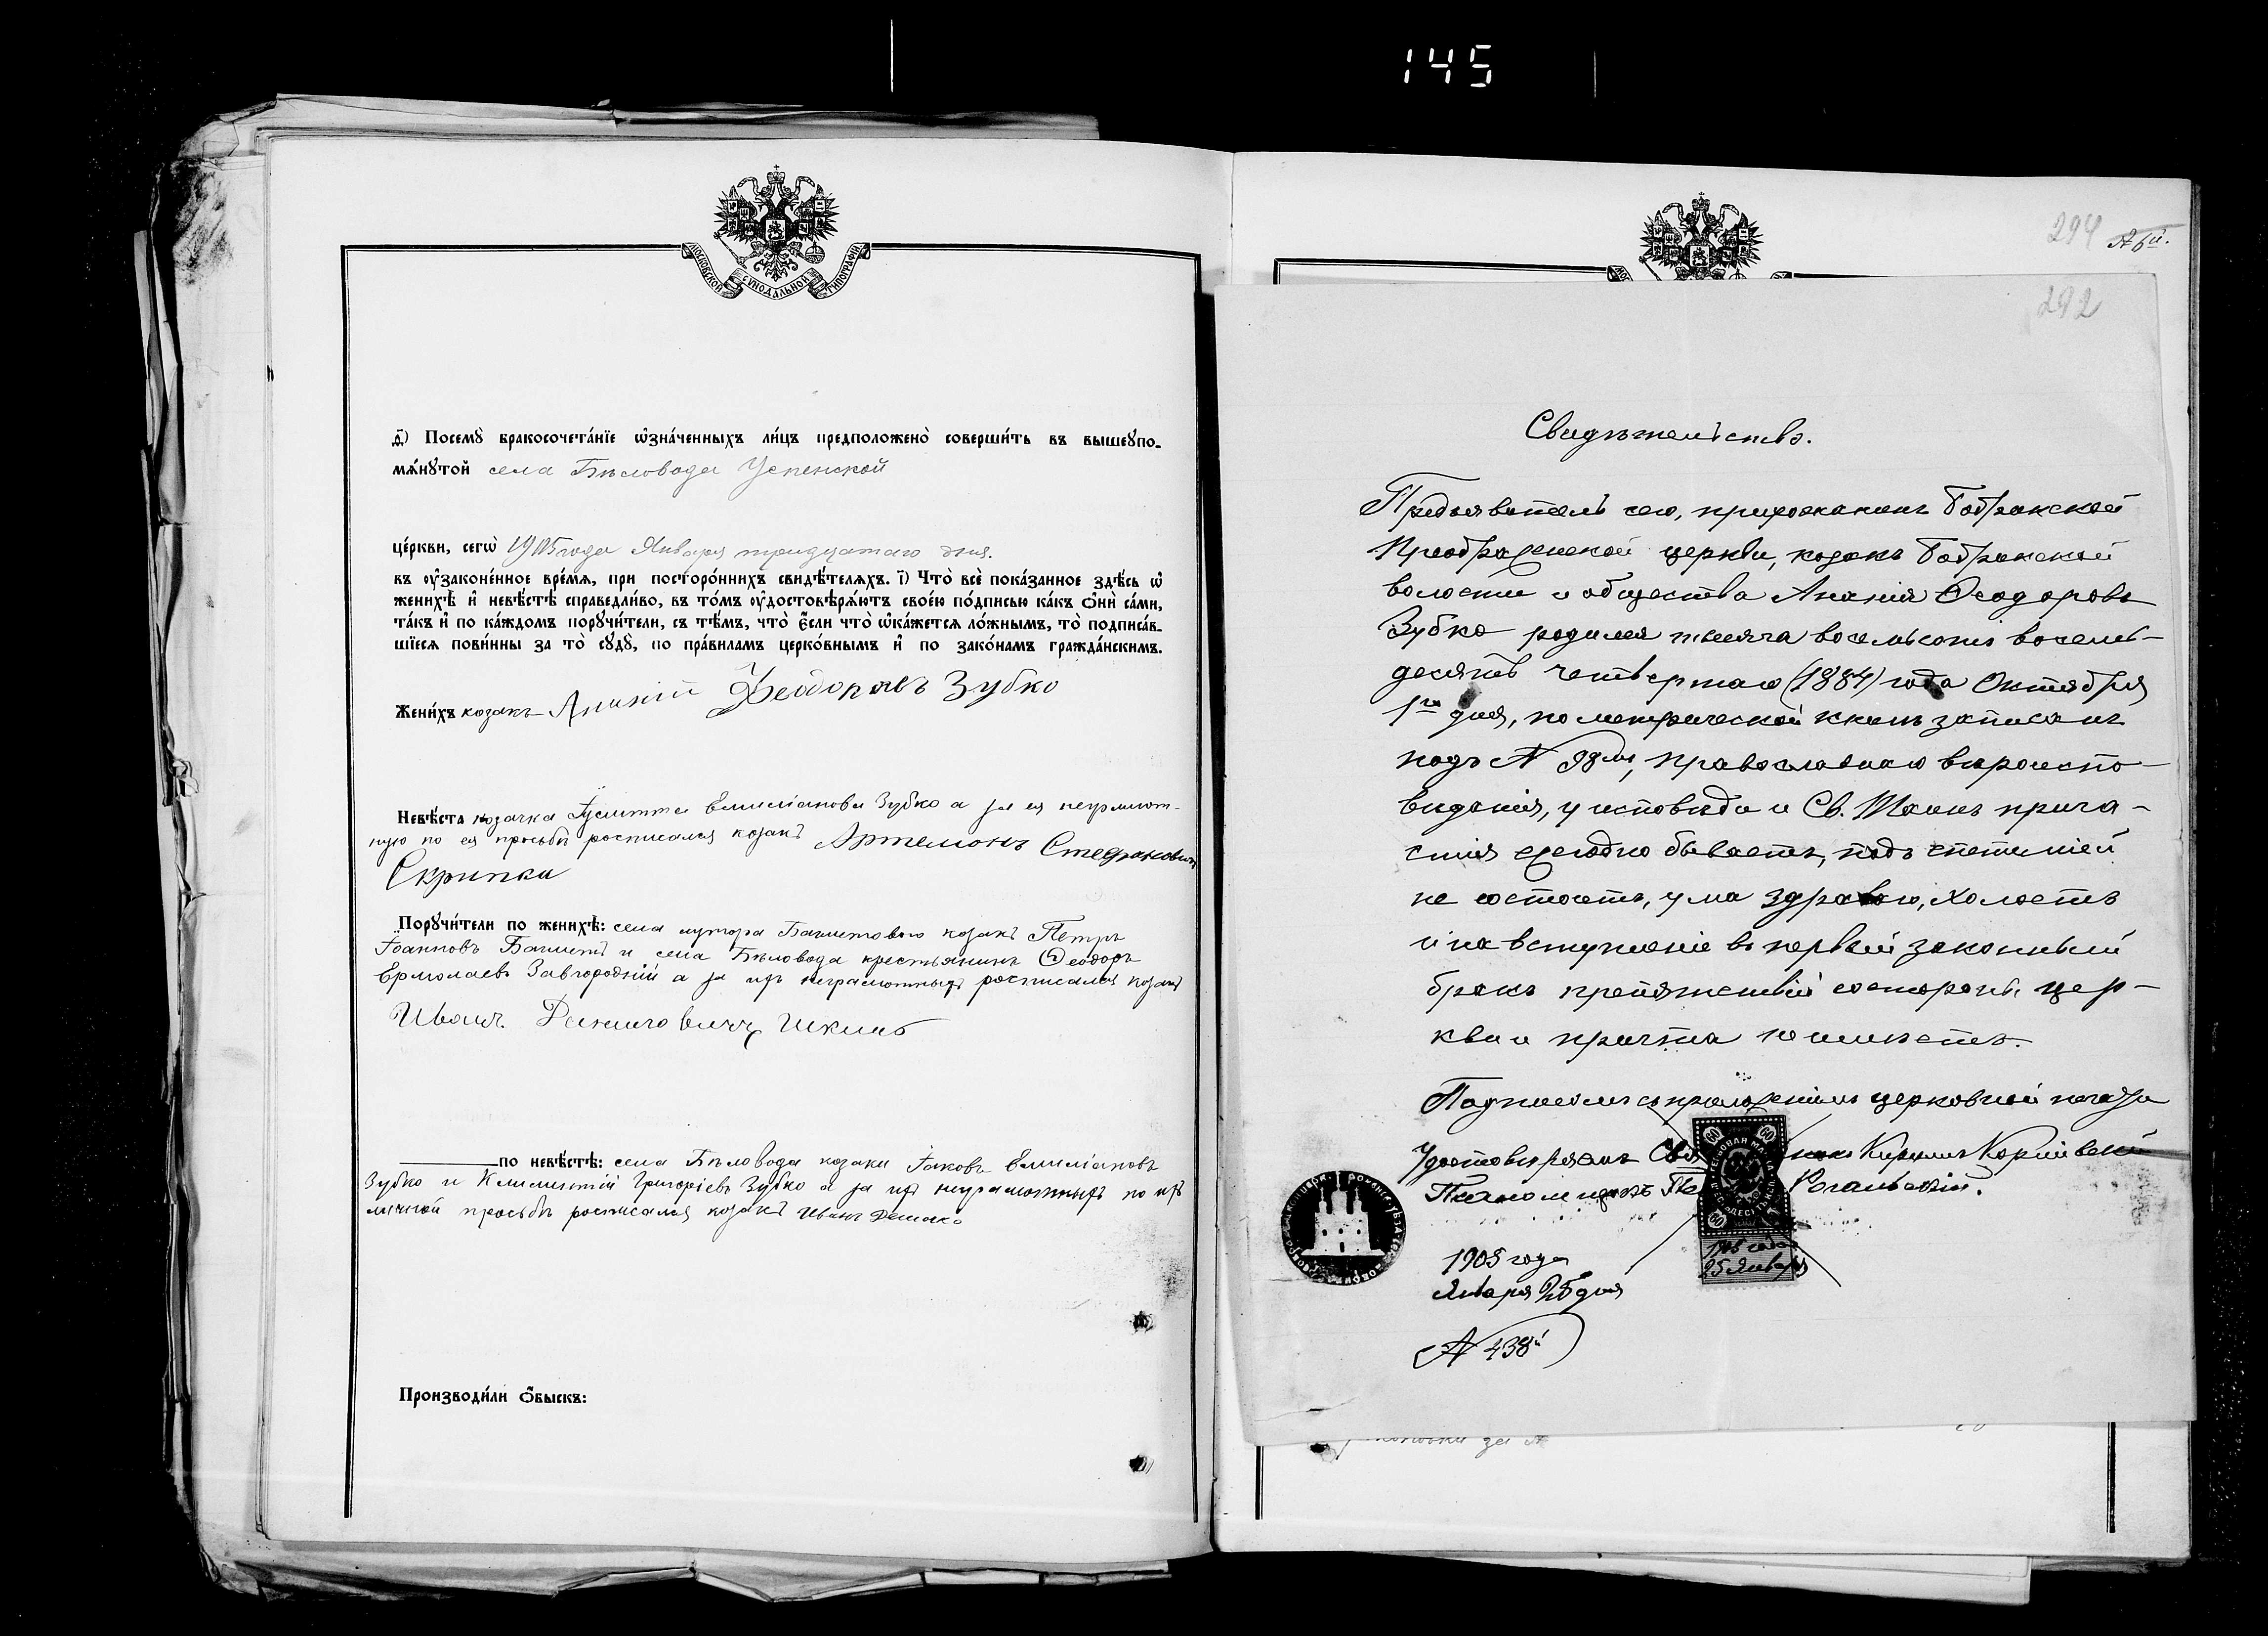 145
МОСКОВСКОЙ СѴНОДАЛЬНОЙ ТИПОГРАФІИ
ѳ҃) Посемꙋ̀ бракосочета́нїе ѡ҆зна́ченныхъ ли́цъ предположено̀ соверши́ть въ вышеꙋпо-
мѧ́нꙋтой села Бѣловода Успенской
це́ркви, сегѡ̀ 1905 года Января тридцатаго дня.
въ ᲂу҆зако́ненное вре́мѧ, при посторо́ннихъ свидѣ́телѧхъ. і҃) Что̀ всѐ пока́занное здѣ́сь ѡ҆
женихѣ̀ и҆ невѣ́стѣ справедли́во, въ то́мъ ᲂу҆достовѣрѧ́ютъ свое́ю по́дписью ка́къ ѻ҆нѝ са́ми,
та́къ и҆ по ка́ждомъ порꙋчи́тели, съ тѣ́мъ, что̀ є҆́сли что̀ ѡ҆ка́жется ло́жнымъ, то̀ подписа́в-
шїеся пови́нны за то̀ сꙋдꙋ̀, по пра́виламъ церко́внымъ и҆ по зако́намъ гражда́нскимъ.
Жени́хъ козакъ Ананій Феодоровъ Зубко
Невѣ́ста козачка Емиліанова Зубко а за ея неграмот-
ную по ея просьбѣ росписался козакъ Артемонъ Стефановичъ
Скрипка
Порꙋчи́тели по женихѣ̀: села хутора козакъ Петръ
Іоанновъ и села Бѣловода крестьянинъ Ѳеодоръ
Ермолаевъ Завгородній а за ихъ неграмотныхъ росписался козакъ
Иванъ
по невѣ́стѣ: села Бѣловода козаки Іаковъ Емиліановъ
Зубко и Климентій Григоріевъ Зубко а за ихъ неграмотныхъ по ихъ
личной просьбѣ росписался козакъ Иванъ
Производи́ли ѻ҆́быскъ:
294 № 6й.
292
Свидѣтельство.
Предъявитель сего, прихожанинъ Бобрикской
Преображенской церкви, козакъ Бобрикской
волости и общества Ананія Ѳеодоровъ
Зубко родился тысяча восемьсотъ восемь-
десятъ четвертаго (1884) года Октября
1го дня, по метрической книгѣ записанъ
подъ № 98мъ, православнаго вѣроиспо-
вѣданія, у исповѣди и Св. Таинъ прича-
стія ежегодно бываетъ, подъ епитиміей
не состоитъ, ума здраваго, холостъ
и на вступленіе въ первый законный
бракъ препятствій со стороны цер-
кви и причта не имѣетъ.
Подписомъ съ приложеніемъ церковной печати
удостовѣряемъ Кириллъ
Псаломщикъ
ГЕРБОВАЯ МАРКА
60
1905 года
25 Января
1905 года
Января 25 дня
№ 438й